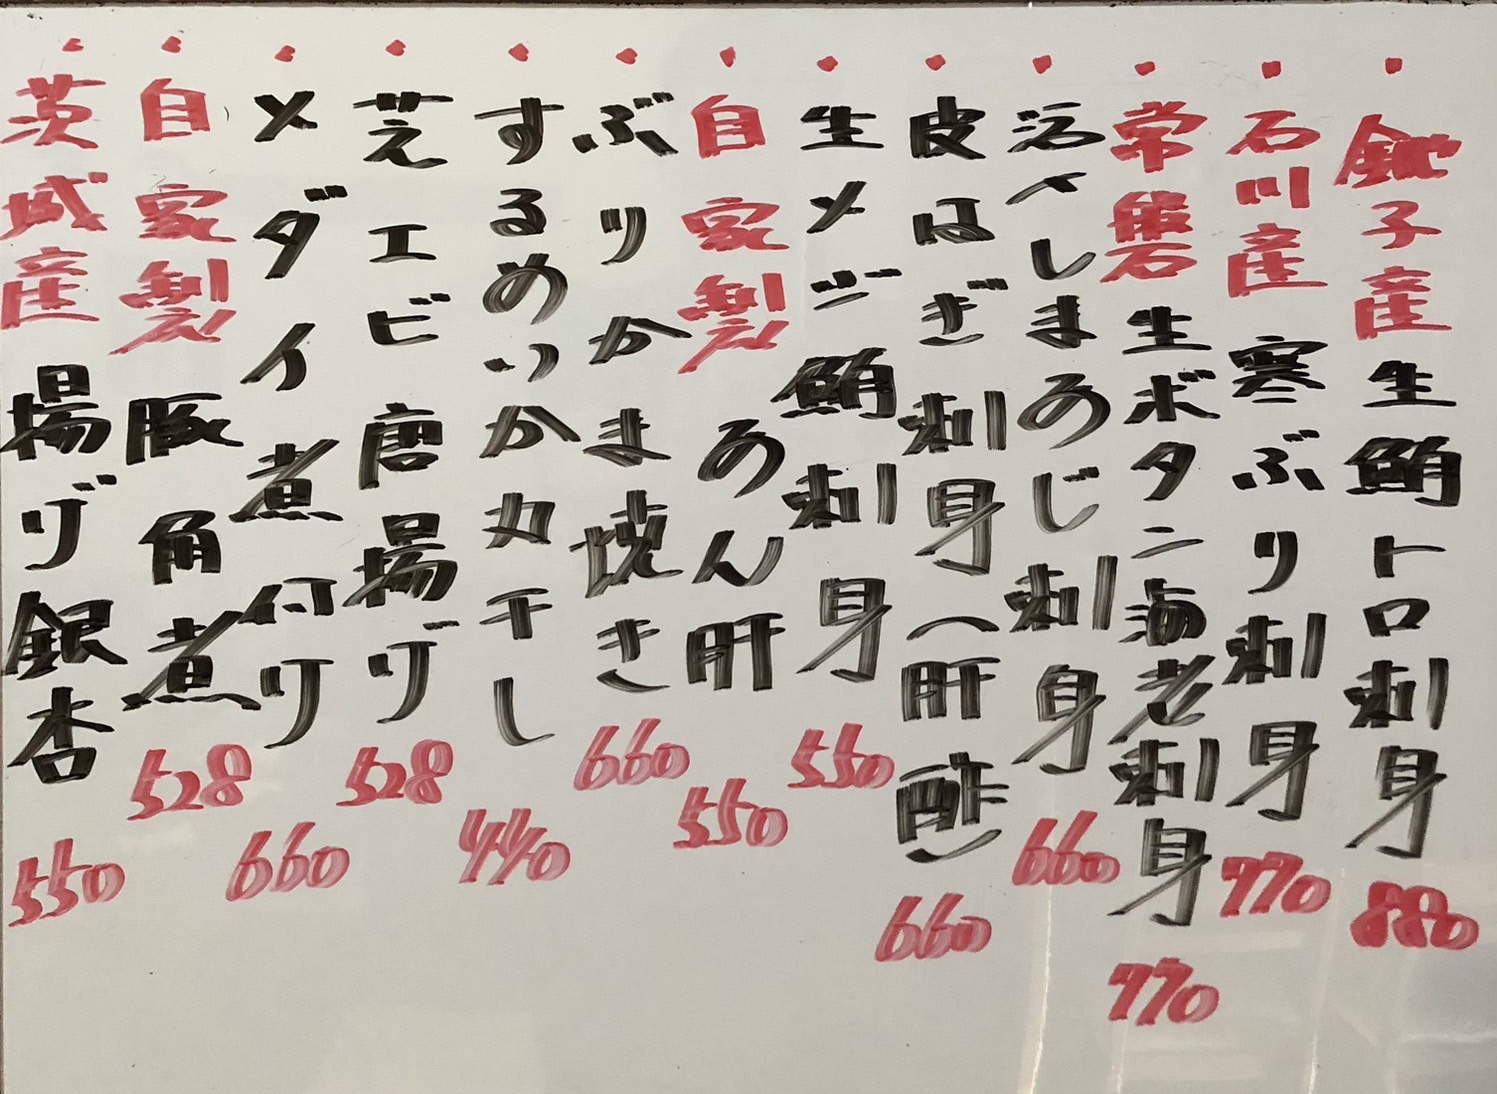 ・銚子産生鮪トロ刺身 880
・石川産寒ぶり刺身 770
・常磐生ボタン海老刺身 770
・活〆しまあじ刺身 660
・皮はぎ刺身(肝酢) 660
・生メジ鮪刺身 550
・自家製あん肝 550
・ぶりかま焼き 660
・するめいか丸干し 440
・芝エビ唐揚げ 528
・メダイ煮付け 660
・自家製豚角煮 528
・茨城産揚げ銀杏 550